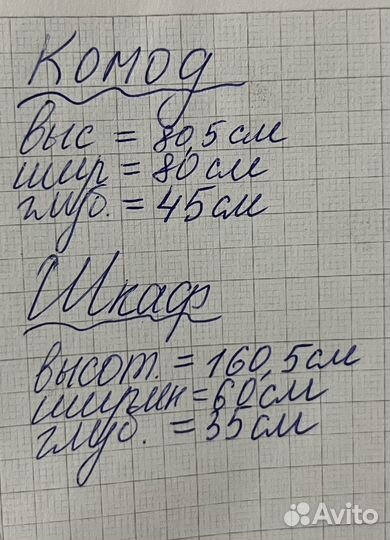 Комод
выс = 80,5 см
шир = 80 см
глуб. = 45 см
Шкаф
высот. = 160,5 см
ширин = 60 см
глуб. = 35 см
Avito